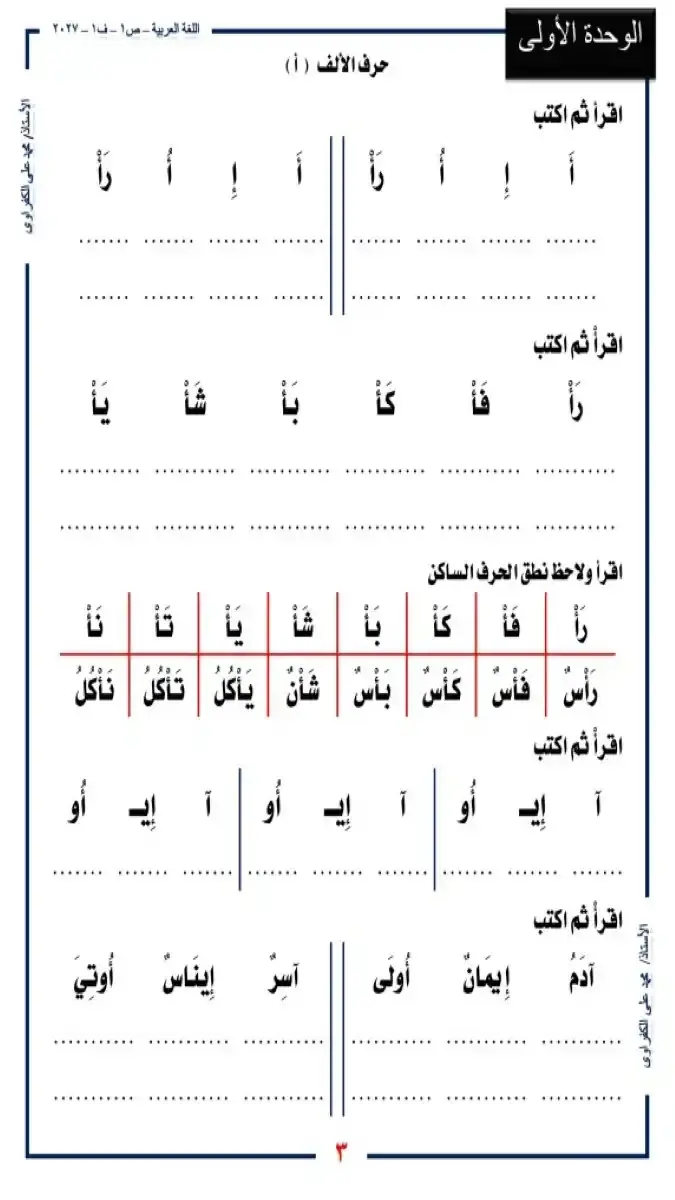 الوحدة الأولى
اللغة العربية – ص١ – ف١ – ٢٠٢٧
حرف الألف ( أ )
الأستاذ/ محمد على الكفراوى
اقرأ ثم اكتب
أَ إِ أُ رَأْ أَ إِ أُ رَأْ
................ ................ ................ ................ ................ ................ ................ ................
................ ................ ................ ................ ................ ................ ................ ................
اقرأ ثم اكتب
رَأْ فَأْ كَأْ بَأْ شَأْ يَأْ
................ ................ ................ ................ ................ ................
................ ................ ................ ................ ................ ................
اقرأ ولاحظ نطق الحرف الساكن
رَأْ فَأْ كَأْ بَأْ شَأْ يَأْ تَأْ نَأْ
رَأْسٌ فَأْسٌ كَأْسٌ بَأْسٌ شَأْنٌ يَأْكُلُ تَأْكُلُ نَأْكُلُ
اقرأ ثم اكتب
آ إِيـ أُو آ إِيـ أُو آ إِيـ أُو
................ ................ ................ ................ ................ ................ ................ ................ ................
اقرأ ثم اكتب
آدَمُ إِيمَانٌ أُولَى آسِرٌ إِينَاسٌ أُوتِيَ
................ ................ ................ ................ ................ ................
................ ................ ................ ................ ................ ................
الأستاذ/ محمد على الكفراوى
٣